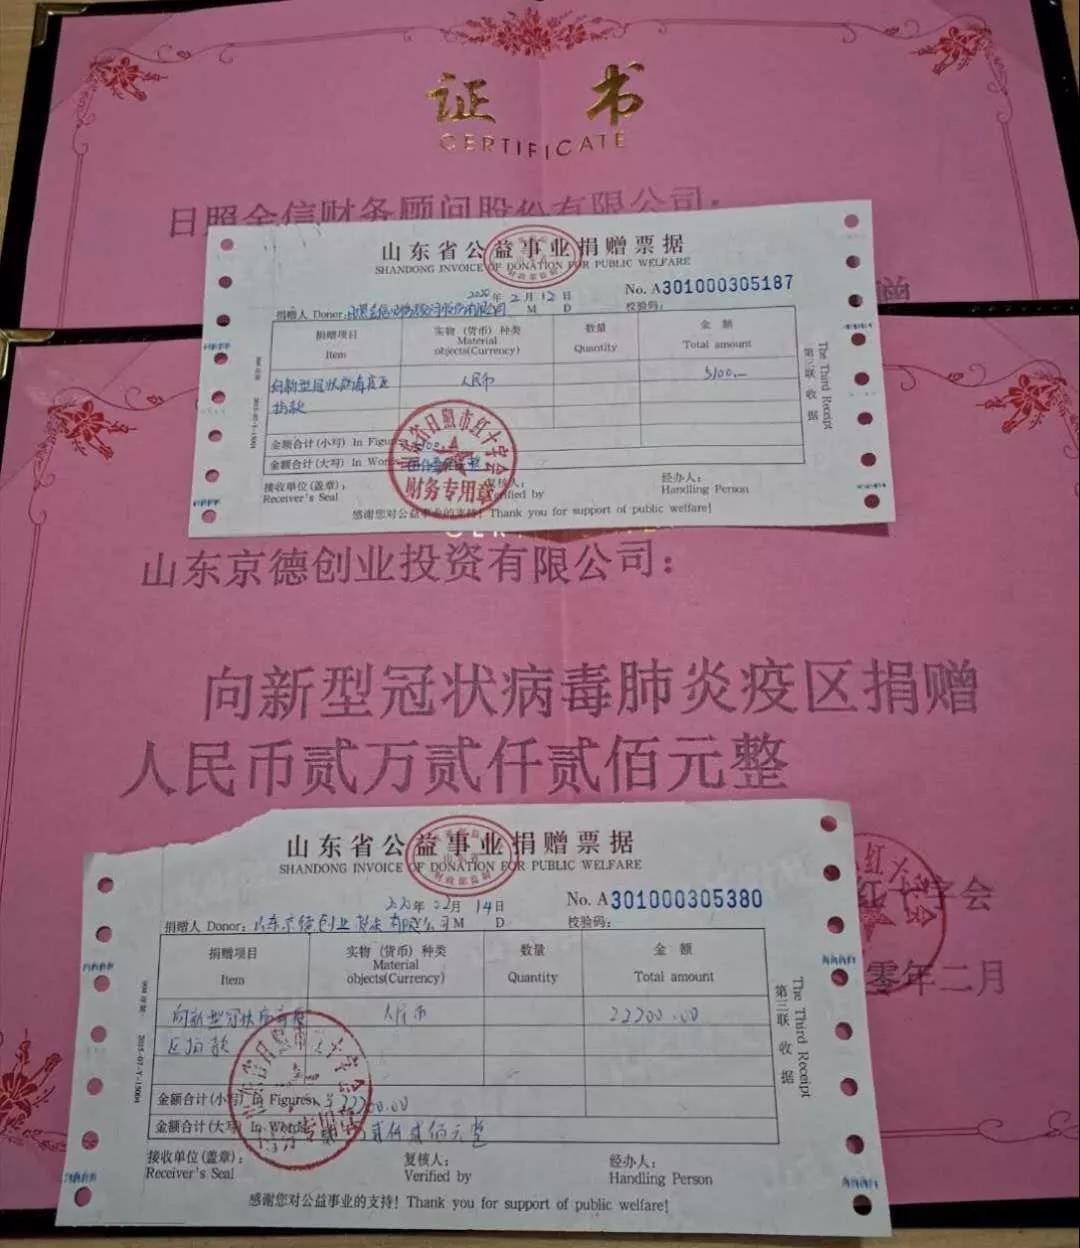 证 书
CERTIFICATE
日照金信财务顾问股份有限公司：
山东省公益事业捐赠票据
SHANDONG INVOICE OF DONATION FOR PUBLIC WELFARE
No. A301000305187
2020年 2月 12日
捐赠人 Donor: M D 校验码：
捐赠项目 实物（货币）种类 数量 金 额
Item Material objects(Currency) Quantity Total amount
向新型冠状病毒疫区 人民币 5100.—
捐款
金额合计(小写) In Figures
金额合计(大写) In Words
接收单位(盖章)： 复核人： 经办人：
Receiver's Seal Verified by Handling Person
感谢您对公益事业的支持！Thank you for support of public welfare!
第三联 收据
The Third Receipt
山东省日照市红十字会
财务专用章
山东京德创业投资有限公司：
向新型冠状病毒肺炎疫区捐赠
人民币贰万贰仟贰佰元整
红十字会
零年二月
山东省公益事业捐赠票据
SHANDONG INVOICE OF DONATION FOR PUBLIC WELFARE
No. A301000305380
月 14日
捐赠人 Donor: 山东京德创业投资有限公司 M D 校验码：
捐赠项目 实物（货币）种类 数量 金 额
Item Material objects(Currency) Quantity Total amount
向新型冠状病毒疫 人民币 22200.00
区捐款
金额合计(小写) In Figures ¥22200.00
金额合计(大写) In Words 贰仟贰佰元整
接收单位(盖章)： 复核人： 经办人：
Receiver's Seal Verified by Handling Person
感谢您对公益事业的支持！Thank you for support of public welfare!
第三联 收据
The Third Receipt
2015-07-Y-15004